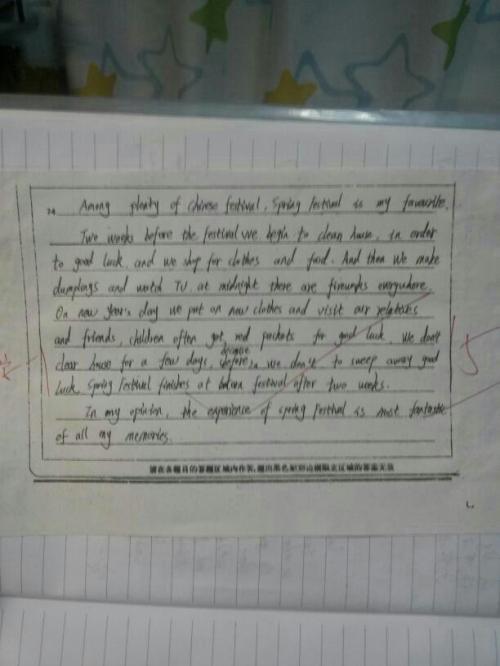 Among plenty of Chinese festival, Spring festival is my favourite.
Two weeks before the festival we begin to clean house, in order
to good luck, and we shop for clothes and food. And then we make
dumplings and watch TV, at midnight there are fireworks everywhere.
On new year's day we put on new clothes and visit our relatives
and friends, children often get red packets for good luck. We don't
clear house for a few days, because we don't to sweep away good
luck. Spring festival finishes at festival after two weeks.
In my opinion, the experience of spring festival is most fantastic
of all my memories.
请在各题目的答题区域内作答,超出黑色矩形边框限定区域的答案无效